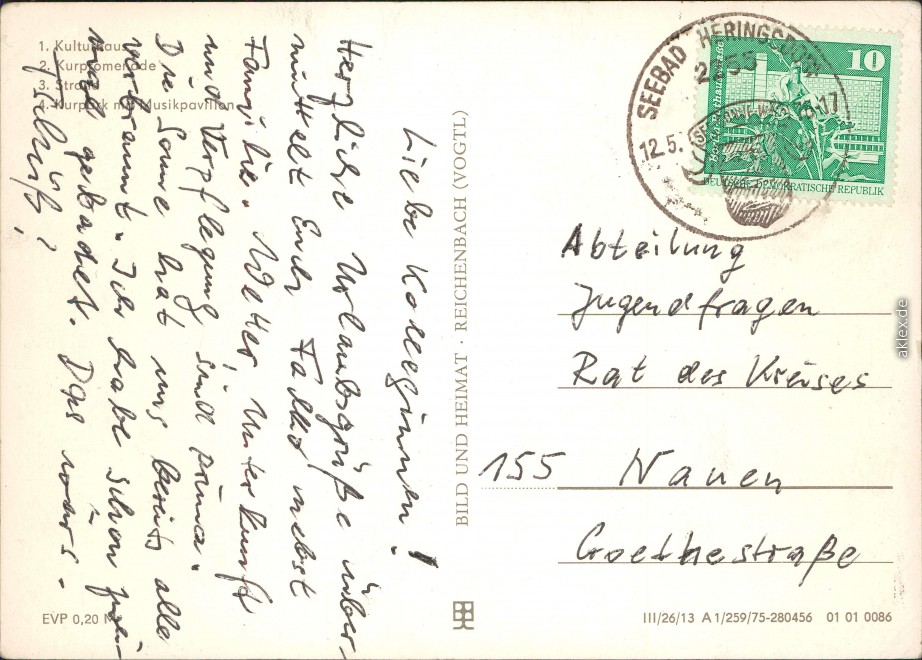 1. Kulturhaus
2. Kurpromenade
3. Strand
4. Kurpark mit Musikpavillon
Liebe Kolleginnen!
Herzliche Urlaubsgrüße über-
mittelt Euch Falko nebst
Familie. Wetter, Unterkunft
und Verpflegung sind prima.
Die Sonne hat uns bereits alle
verbrannt. Ich habe schon
mal gebadet. Das wars.
Tschüß!
EVP 0,20 M
BILD UND HEIMAT · REICHENBACH (VOGTL)
SEEBAD HERINGSDORF
2255
12.5.
-17
10
DEUTSCHE DEMOKRATISCHE REPUBLIK
Abteilung
Jugendfragen
Rat des Kreises
155 Nauen
Goethestraße
III/26/13 A 1/259/75-280456 01 01 0086
aklex.de